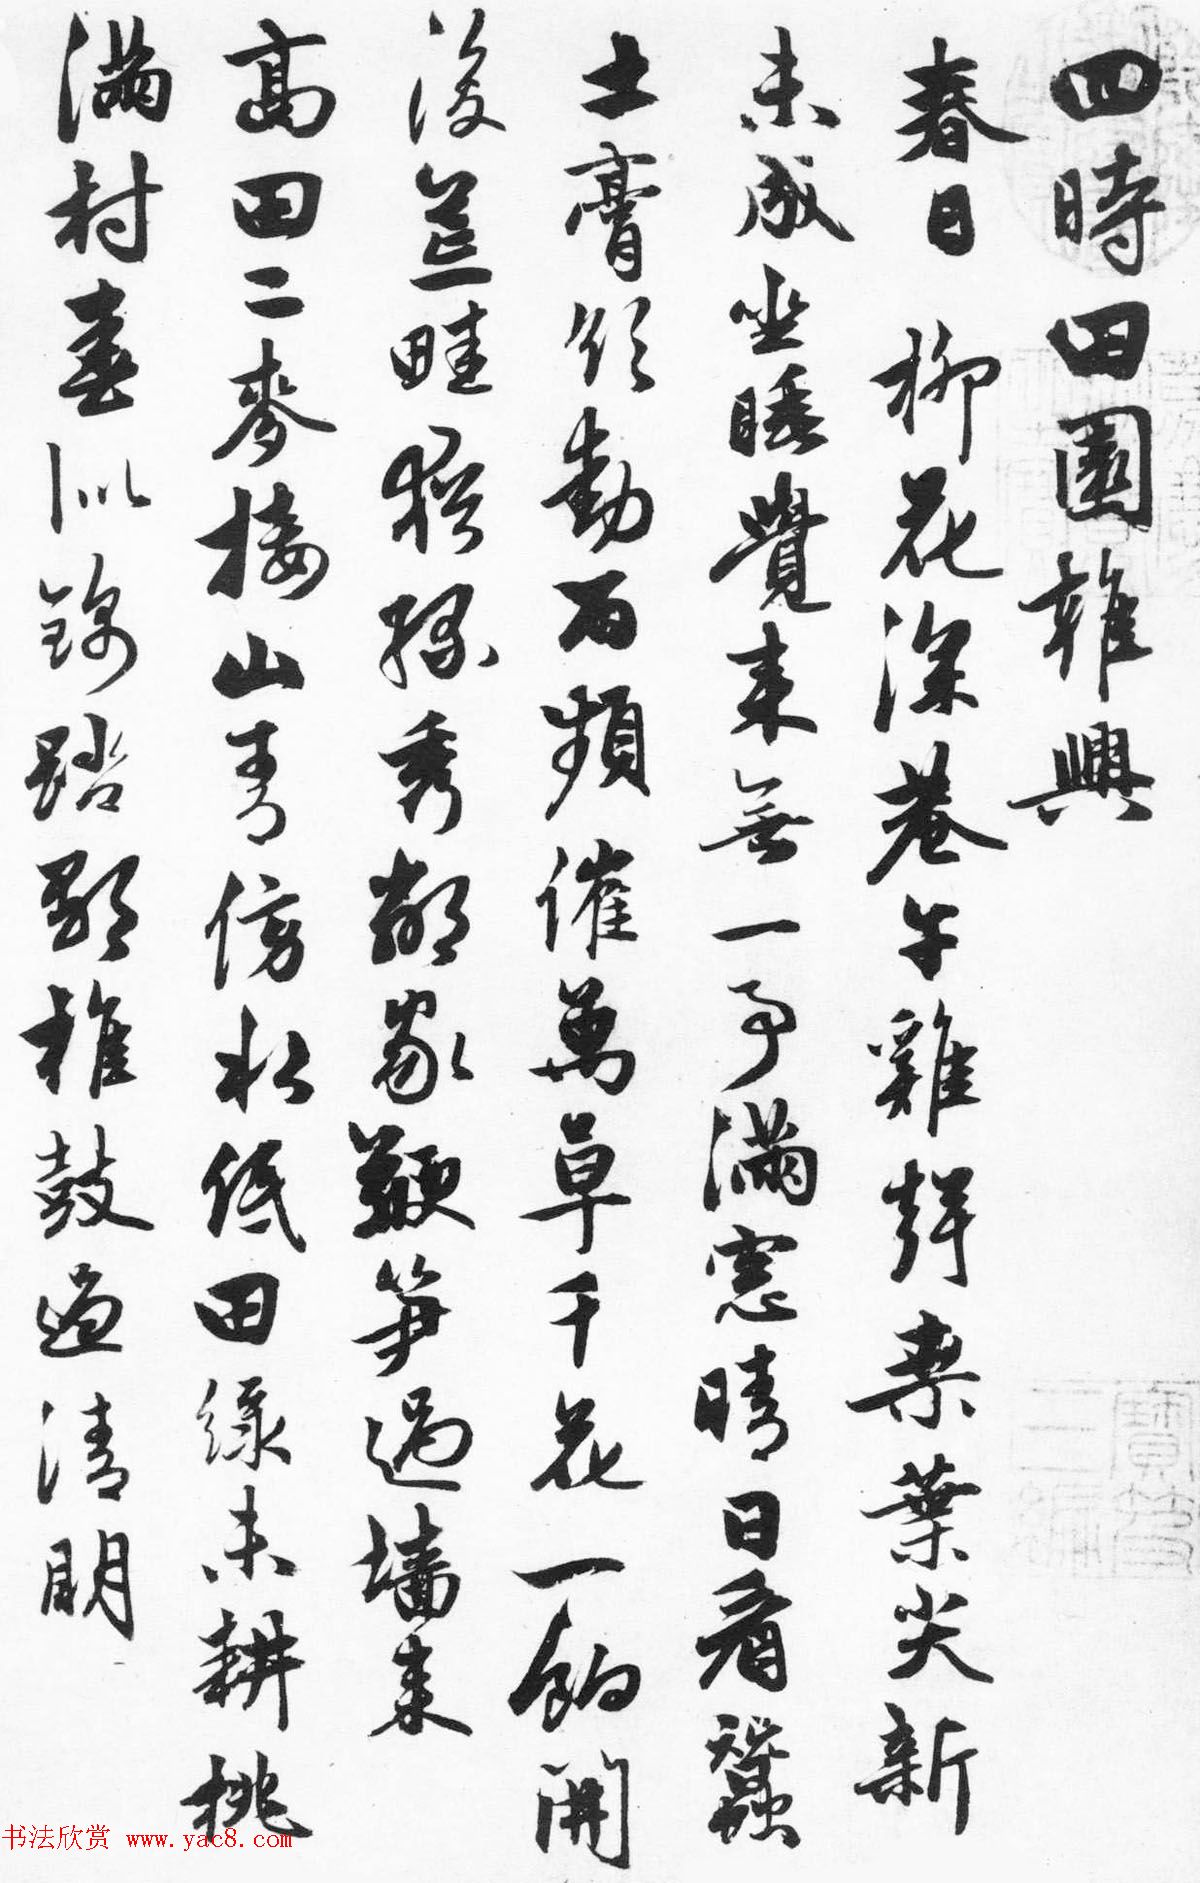 四時田園雜興
春日 柳花深巷午雞聲桒葉尖新
未成坐睡覺來無一事滿窓晴日看蠶
土膏欲動雨頻催萬草千花一餉開
後荒畦猶綠秀鄰家鞭笋過墻來
高田二麥接山青傍水低田綠未耕桃
滿村春似錦踏歌椎鼓過清明
寶笈三編
书法欣赏 www.yac8.com